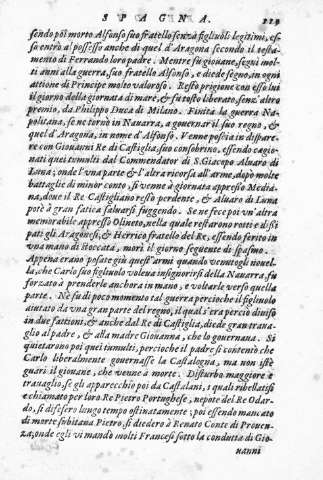 SPAGNA. 229
sendo poi morto Alfonso suo fratello senza figliuoli legitimi, es-
sa entrò al possesso anche di quel d'Aragona secondo il testa-
mento di Ferrando loro padre. Mentre fu giouane, seguì mol-
ti anni alla guerra, suo fratello Alfonso, e diede segno, in ogni
attione di Principe molto valoroso. Restò prigione con esso lui
il giorno della giornata di mare, & fu tosto liberato, senz'altro
prezzo, da Philippo Duca di Milano. Finita la guerra Na-
politana, se ne tornò in Nauarra, a gouernar il suo regno, &
quel d'Aragona, in nome d'Alfonso. Venne poscia in dispare-
re con Giouanni Re di Castiglia, suo consobrino, essendo cagio-
nati quei tumulti dal Commendator di S. Giacopo Aluaro di
Luna; onde l'vna parte & l'altra ricorsa all'arme, dopò molte
battaglie di minor conto, si venne à giornata appresso Media-
na, doue il Re Castigliano restò perdente, & Aluaro di Luna
potè à gran fatica saluarsi fuggendo. Se ne fece poi vn'altra
memorabile appresso Olineto, nella quale restarono rotti e dissi-
pati gli Aragonesi, & Herrico fratello del Re, essendo ferito in
vna mano di stoccata, morì il giorno seguente di spasmo.
Appena erano posate giù quest'armi quando venutogli nouel-
la, che Carlo suo figliuolo voleua insignorirsi della Nauarra, fu
forzato à prenderle anchora in mano, e voltarle verso quella
parte. Nè fu di poco momento tal guerra percioche il figliuolo
aiutato da vna gran parte del regno, il qual s'era perciò diuiso
in due fattioni, & anche dal Re di Castiglia, diede gran traua-
glio al padre, & alla madre Giouanna, che lo gouernaua. Si
quietarono poi quei tumulti, percioche il padre si contentò che
Carlo liberalmente gouernasse la Castalogna, ma non istè
guari il giouane, che venne à morte. Disturbo maggiore e
trauaglio, se gli apparecchiò poi da Castalani, i quali ribellatisi
e chiamato per loro Re Pietro Portughese, nepote del Re Odar-
do, si difesero lungo tempo ostinatamente: poi essendo mancato
di morte subitana Pietro, si diedero à Renato Conte di Prouen-
za, onde egli vi mandò molti Francesi sotto la condutta di Gio-
uanni